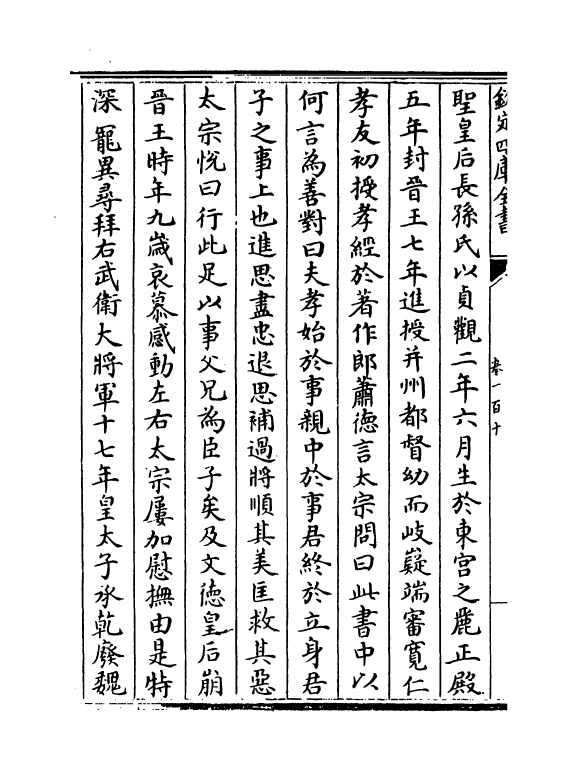 欽定四庫全書
卷一百十
聖皇后長孫氏以貞觀二年六月生於東宫之麗正殿
五年封晉王七年進授并州都督幼而岐嶷端審寛仁
孝友初授孝經於著作郎蕭德言太宗問曰此書中以
何言為善對曰夫孝始於事親中於事君終於立身君
子之事上也進思盡忠退思補過將順其美匡救其惡
太宗悦曰行此足以事父兄為臣子矣及文徳皇后崩
晉王時年九歳哀慕感動左右太宗屢加慰撫由是特
深寵異尋拜右武衛大將軍十七年皇太子承乾廢魏